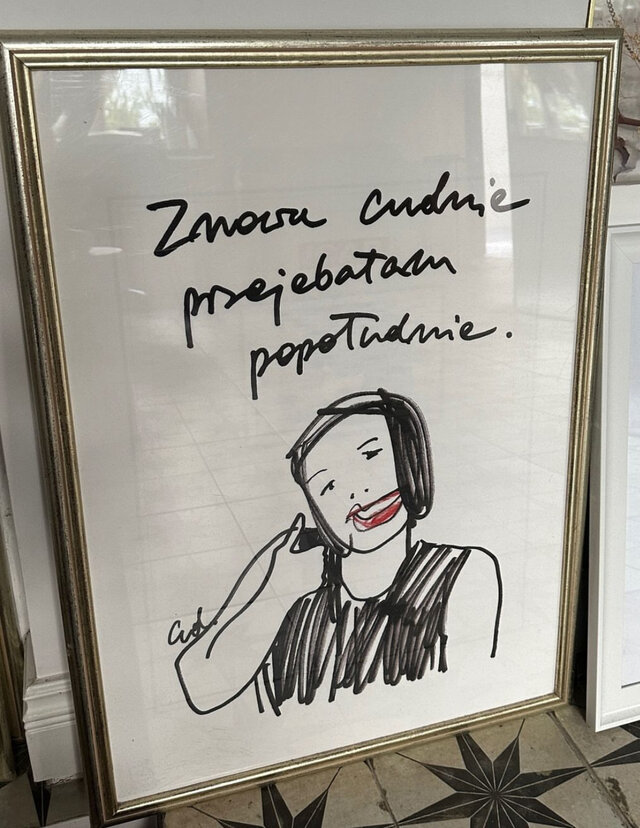 Znowu cudnie
przejebałam
popołudnie.